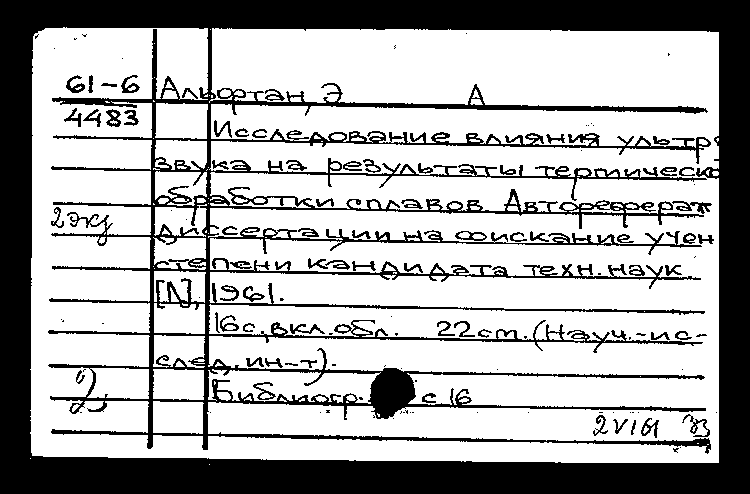 61-6 Альортан, Э А
4483
Исследование влияния ультра
звука на результаты термическо
обработки сплавов. Автореферат
2 экз диссертации на соискание учен
степени кандидата техн. наук.
[Л], 1961.
16 с., вкл. обл. 22 cm. (Науч.-ис-
след. ин-т).
Библиогр. с 16
2 VI 61